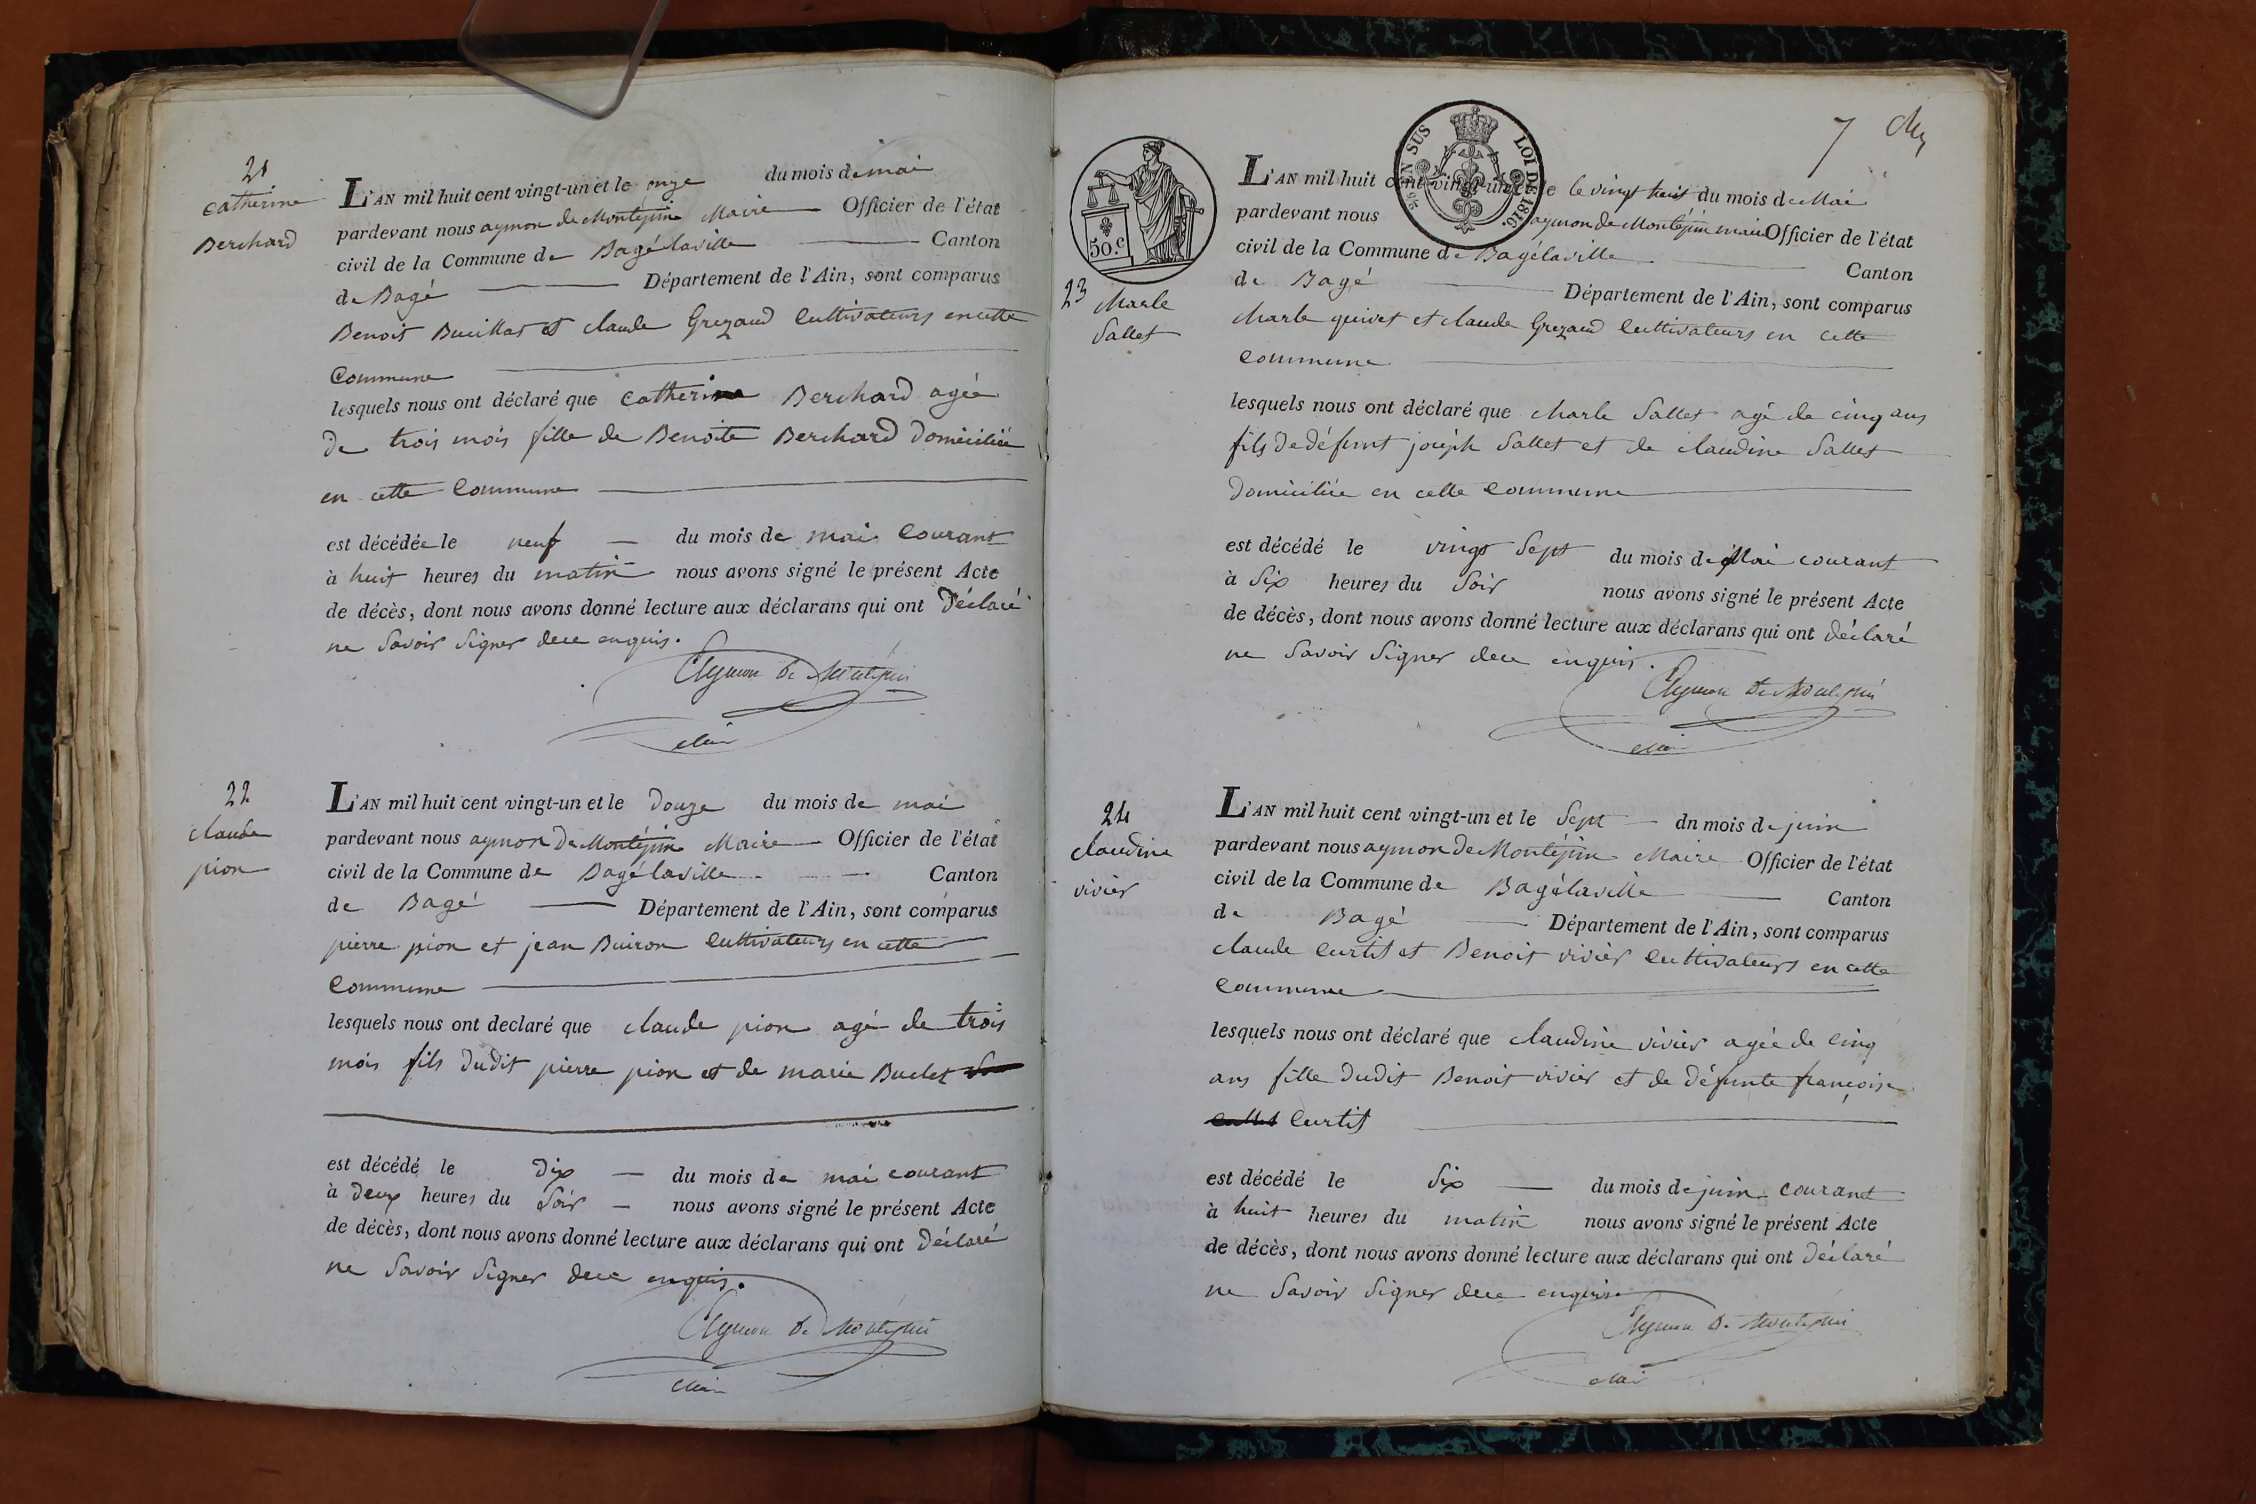 21
catherine
Berchard
L'AN mil huit cent vingt-un et le onze du mois de mai
pardevant nous aymon de Montépin Maire Officier de l'état
civil de la Commune de Bagélaville Canton
de Bagé Département de l'Ain, sont comparus
Benoit Bucillat et claude Grezaud cultivateurs en cette
commune
lesquels nous ont déclaré que catherine Berchard agée
de trois mois fille de Benoite Berchard domiciliée
en cette commune
est décédée le neuf du mois de mai courant
à huit heures du matin nous avons signé le présent Acte
de décès, dont nous avons donné lecture aux déclarans qui ont déclaré
ne savoir signer dece enquis.
Aymon de Montépin
Maire
22
claude
pion
L'AN mil huit cent vingt-un et le douze du mois de mai
pardevant nous aymon de Montépin Maire Officier de l'état
civil de la Commune de Bagélaville Canton
de Bagé Département de l'Ain, sont comparus
pierre pion et jean Buiron cultivateurs en cette
commune
lesquels nous ont declaré que claude pion agé de trois
mois fils dudit pierre pion et de marie Buclet
est décédé le dix du mois de mai courant
à deux heures du soir nous avons signé le présent Acte
de décès, dont nous avons donné lecture aux déclarans qui ont déclaré
ne savoir signer dece enquis.
Aymon de Montépin
Maire
7
EN SUS LOI DE 1816.
50.c
23
charle
Sallet
L'AN mil huit cent vingt-un et le le vingt huit du mois de Mai
pardevant nous aymon de Montépin maire Officier de l'état
civil de la Commune de Bagélaville Canton
de Bagé Département de l'Ain, sont comparus
charle quivet et claude Grezaud cultivateurs en cette
commune
lesquels nous ont déclaré que charle Sallet agé de cinq ans
fils de défunt joseph Sallet et de claudine Sallet
domiciliée en cette commune
est décédé le vingt sept du mois de Mai courant
à six heures du soir nous avons signé le présent Acte
de décès, dont nous avons donné lecture aux déclarans qui ont déclaré
ne savoir signer dece enquis.
Aymon de Montépin
Maire
24
claudine
vivier
L'AN mil huit cent vingt-un et le sept dn mois de juin
pardevant nous aymon de Montépin Maire Officier de l'état
civil de la Commune de Bagélaville Canton
de Bagé Département de l'Ain, sont comparus
claude curtil et Benoit vivier cultivateurs en cette
commune
lesquels nous ont déclaré que claudine vivier agée de cinq
ans fille dudit Benoit vivier et de défunte françoise
curtil
est décédé le six du mois de juin courant
à huit heures du matin nous avons signé le présent Acte
de décès, dont nous avons donné lecture aux déclarans qui ont déclaré
ne savoir signer dece enquis.
Aymon de Montépin
Maire